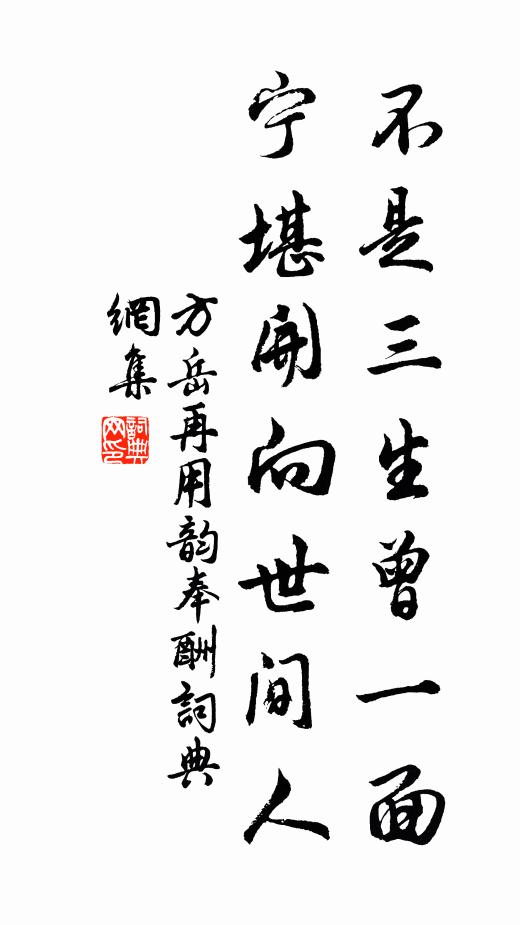 不是三生曾一面
宁堪開向世间人
方岳再用韵奉酬詞典
網集
詞典
网印